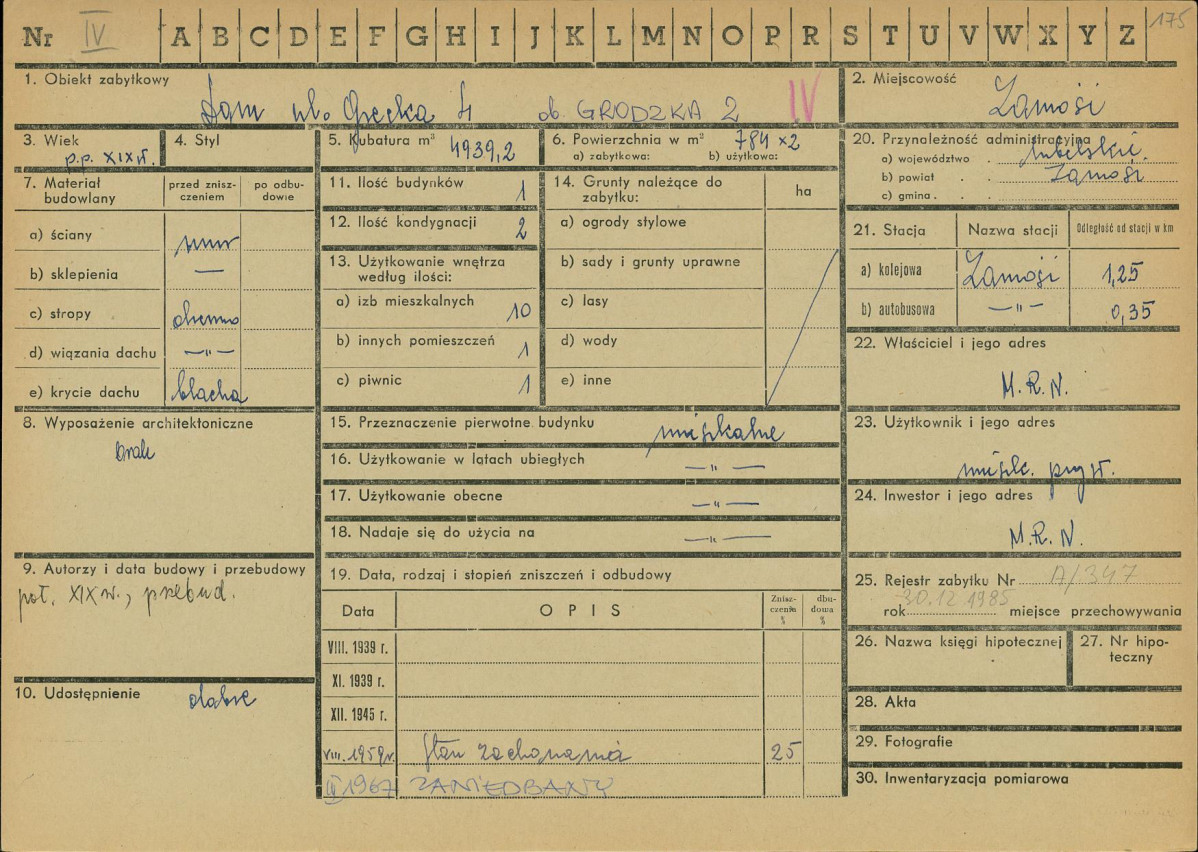 Nr IV A B C D E F G H I J K L M N O P R S T U V W X Y Z 175
1. Obiekt zabytkowy
Dom ul. Grecka 4 ob. GRODZKA 2 IV
2. Miejscowość
Zamość
3. Wiek
p.p. XIX w.
4. Styl
5. Kubatura m³ 4939,2
6. Powierzchnia w m² 784 x 2
a) zabytkowa: b) użytkowa:
7. Materiał budowlany
przed zniszczeniem
po odbudowie
a) ściany mur
b) sklepienia —
c) stropy drewno
d) wiązania dachu —"—
e) krycie dachu blacha
8. Wyposażenie architektoniczne
brak
9. Autorzy i data budowy i przebudowy
poł. XIX w., przebud.
10. Udostępnienie dobre
11. Ilość budynków 1
12. Ilość kondygnacji 2
13. Użytkowanie wnętrza
według ilości:
a) izb mieszkalnych 10
b) innych pomieszczeń 1
c) piwnic 1
14. Grunty należące do
zabytku:
ha
a) ogrody stylowe
b) sady i grunty uprawne
c) lasy
d) wody
e) inne
15. Przeznaczenie pierwotne budynku mieszkalne
16. Użytkowanie w latach ubiegłych —"—
17. Użytkowanie obecne —"—
18. Nadaje się do użycia na —"—
19. Data, rodzaj i stopień zniszczeń i odbudowy
Data OPIS Zniszczenia % dbudowa %
VIII. 1939 r.
XI. 1939 r.
XII. 1945 r.
VIII. 1959 r. Stan zachowania 25
1967 ZANIEDBANY
20. Przynależność administracyjna
a) województwo . lubelskie.
b) powiat . . Zamość
c) gmina . . .
21. Stacja Nazwa stacji Odległość od stacji w km
a) kolejowa Zamość 1,25
b) autobusowa —"— 0,35
22. Właściciel i jego adres
M.R.N.
23. Użytkownik i jego adres
24. Inwestor i jego adres
M.R.N.
25. Rejestr zabytku Nr A/347
rok 30.12.1985 miejsce przechowywania
26. Nazwa księgi hipotecznej
27. Nr hipo-
teczny
28. Akta
29. Fotografie
30. Inwentaryzacja pomiarowa